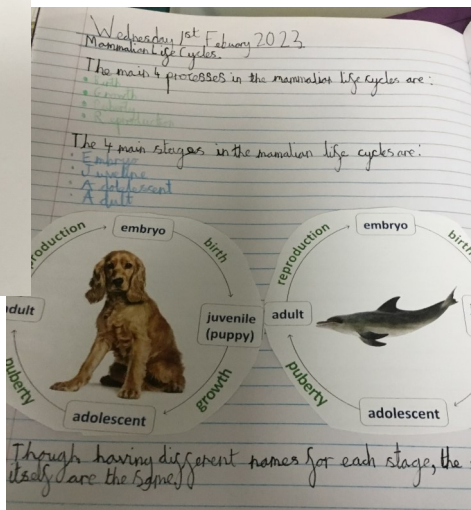 Wednesday 1st Febuary 2023
Mammalian Life Cycles.
The main 4 processes in the mammalian life cycles are:
• Birth
• Growth
• Puberty
• Reproduction
The 4 main stages in the mamalian life cycles are:
• Embryo
• Juveline
• Adolescent
• Adult
embryo
birth
juvenile
(puppy)
growth
adolescent
puberty
adult
production
embryo
birth
adolescent
puberty
adult
reproduction
Though having different names for each stage, the
itself are the same.